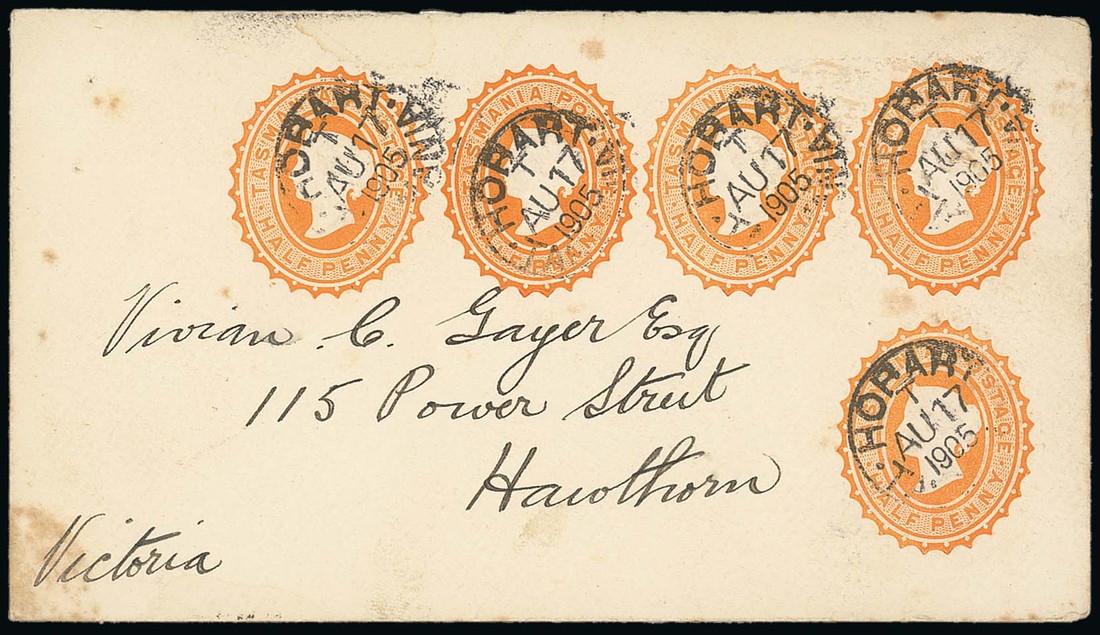 TASMANIA POSTAGE HALF PENNY
HOBART
T
AU 17
1905
TASMANIA POSTAGE HALF PENNY
HOBART
T
AU 17
1905
TASMANIA POSTAGE HALF PENNY
HOBART
T
AU 17
1905
TASMANIA POSTAGE HALF PENNY
HOBART
T
AU 17
1905
Vivian C. Gayer Esq
115 Power Street
Hawthorn
Victoria
TASMANIA POSTAGE HALF PENNY
HOBART
T
AU 17
1905